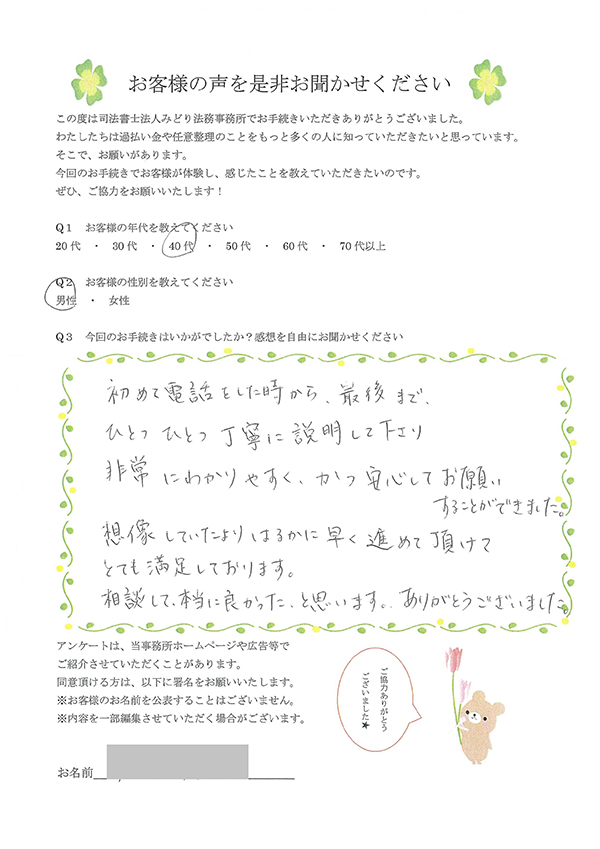 お客様の声を是非お聞かせください
この度は司法書士法人みどり法務事務所でお手続きいただきありがとうございました。
わたしたちは過払い金や任意整理のことをもっと多くの人に知っていただきたいと思っています。
そこで、お願いがあります。
今回のお手続きでお客様が体験し、感じたことを教えていただきたいのです。
ぜひ、ご協力をお願いいたします！
Q1　お客様の年代を教えてください
20代　・　30代　・　40代　・　50代　・　60代　・　70代以上
Q2　お客様の性別を教えてください
男性　・　女性
Q3　今回のお手続きはいかがでしたか？感想を自由にお聞かせください
初めて電話をした時から、最後まで、
ひとつひとつ丁寧に説明して下さり
非常にわかりやすく、かつ安心してお願い
することができました。
想像していたよりはるかに早く進めて頂けて
とても満足しております。
相談して、本当に良かった、と思います。ありがとうございました。
アンケートは、当事務所ホームページや広告等で
ご紹介させていただくことがあります。
同意頂ける方は、以下に署名をお願いいたします。
※お客様のお名前を公表することはございません。
※内容を一部編集させていただく場合がございます。
ご協力ありがとう
ございました★
お名前